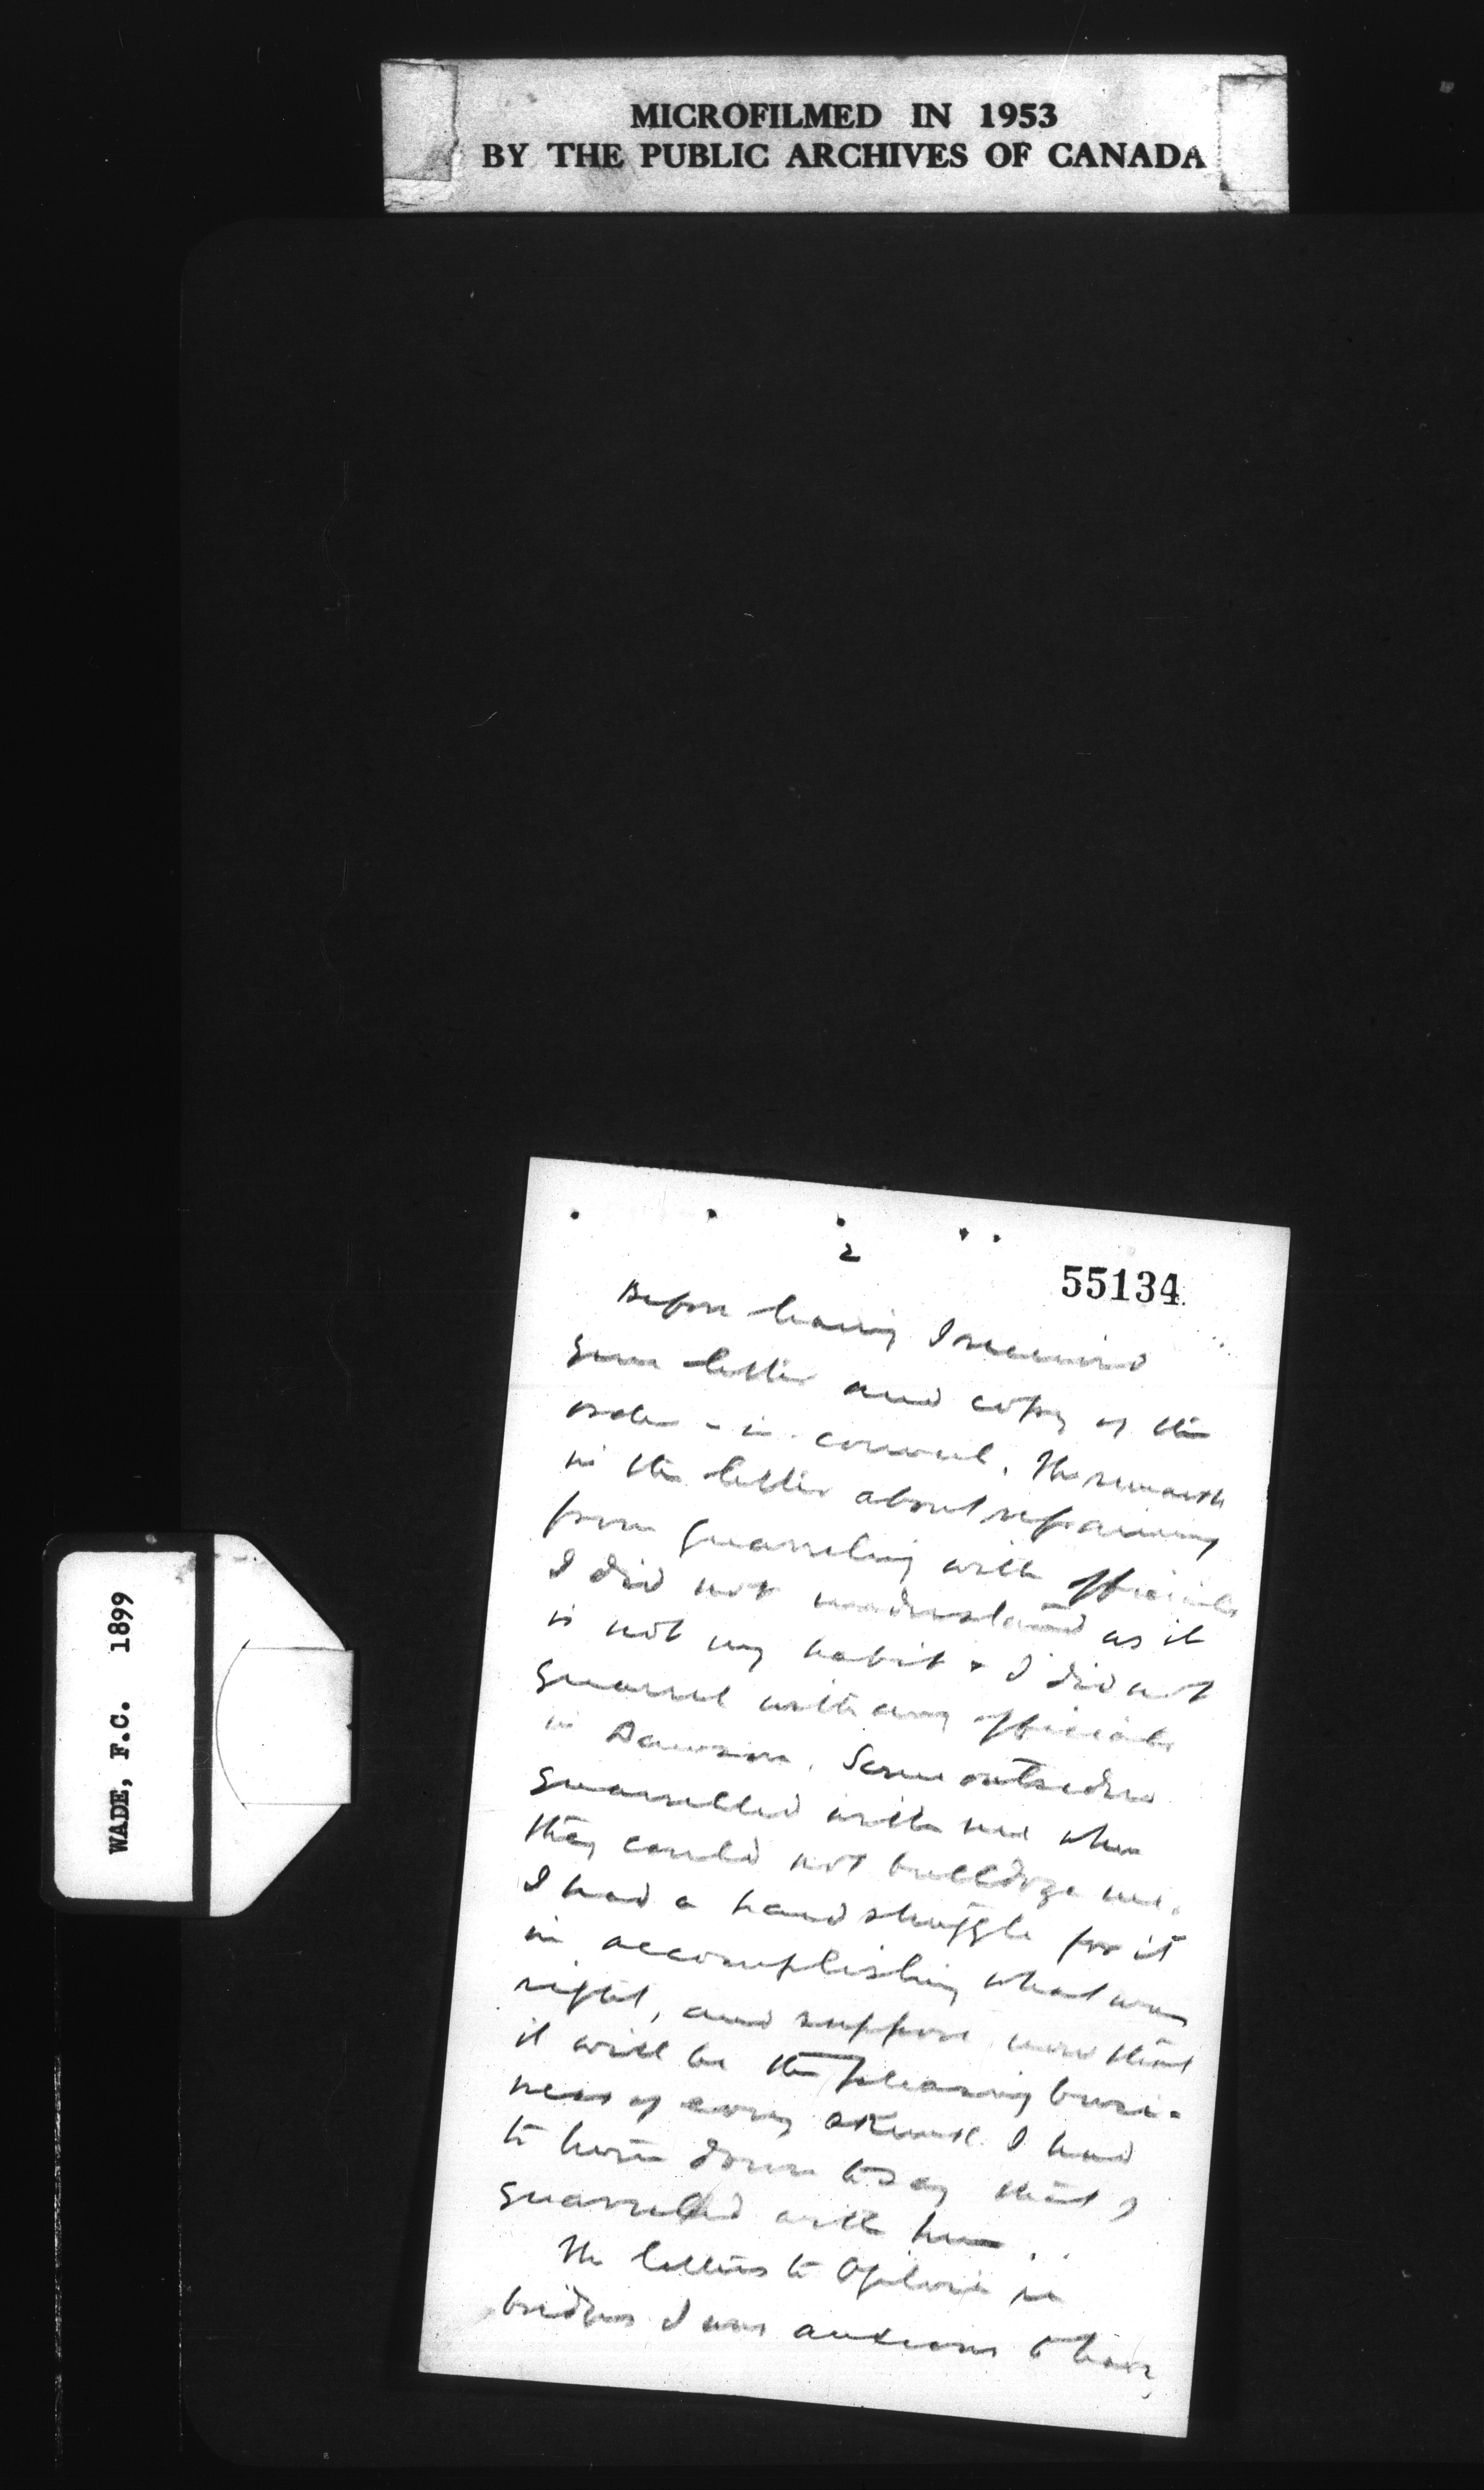 MICROFILMED IN 1953
BY THE PUBLIC ARCHIVES OF CANADA
WADE, F.C. 1899
2
55134
Before leaving I received
your letter and copy of the
order-in-council. The remarks
in the letter about refraining
from quarreling with officials
I did not understand as it
is not my habit & I did not
quarrel with any officials
in Dawson. Some outsiders
quarrelled with me when
they could not bulldoze me.
I had a hard struggle for it
in accomplishing what was
right, and suppose now that
it will be the pleasing busi-
ness of every skunk I had
to turn down to say that I
quarreled with him.
The letters to Ogilvie re
bridges I was anxious to have